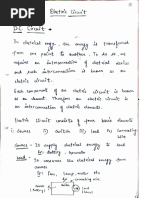 Electric Circuit
D.C. Circuit →
In electrical engg. the energy is transformed
from one point to another. To do so, we
require an interconnection of electrical devices
and such interconnection is known as an
electric circuit.
Each component of an electric circuit is known
as an element. Therefore an electric circuit is an
interconnection of electrical elements.
Electric Circuit consists of four basic elements
1) Source 2) Switch 3) load 4) Connecting
wire
Source → It supply electric energy to load
for battery, Generator
Load → It consumes the electrical energy from
source.
For fan, lamp, motor etc.
Source
(Battery)
Load
(Lamp)